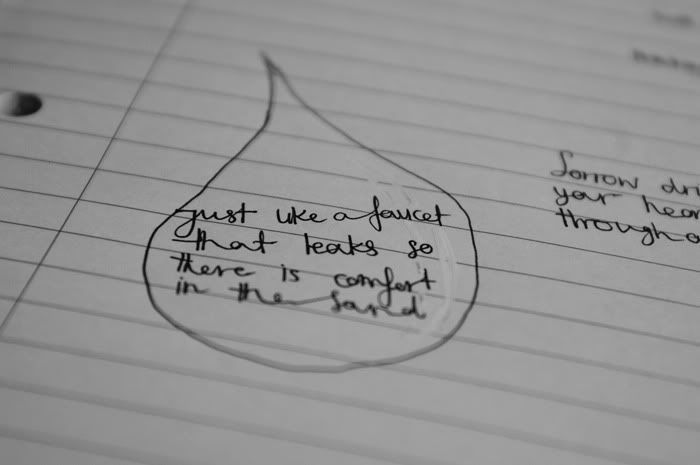 just like a faucet
that leaks so
there is comfort
in the sand
Sorrow dri
your hear
through a